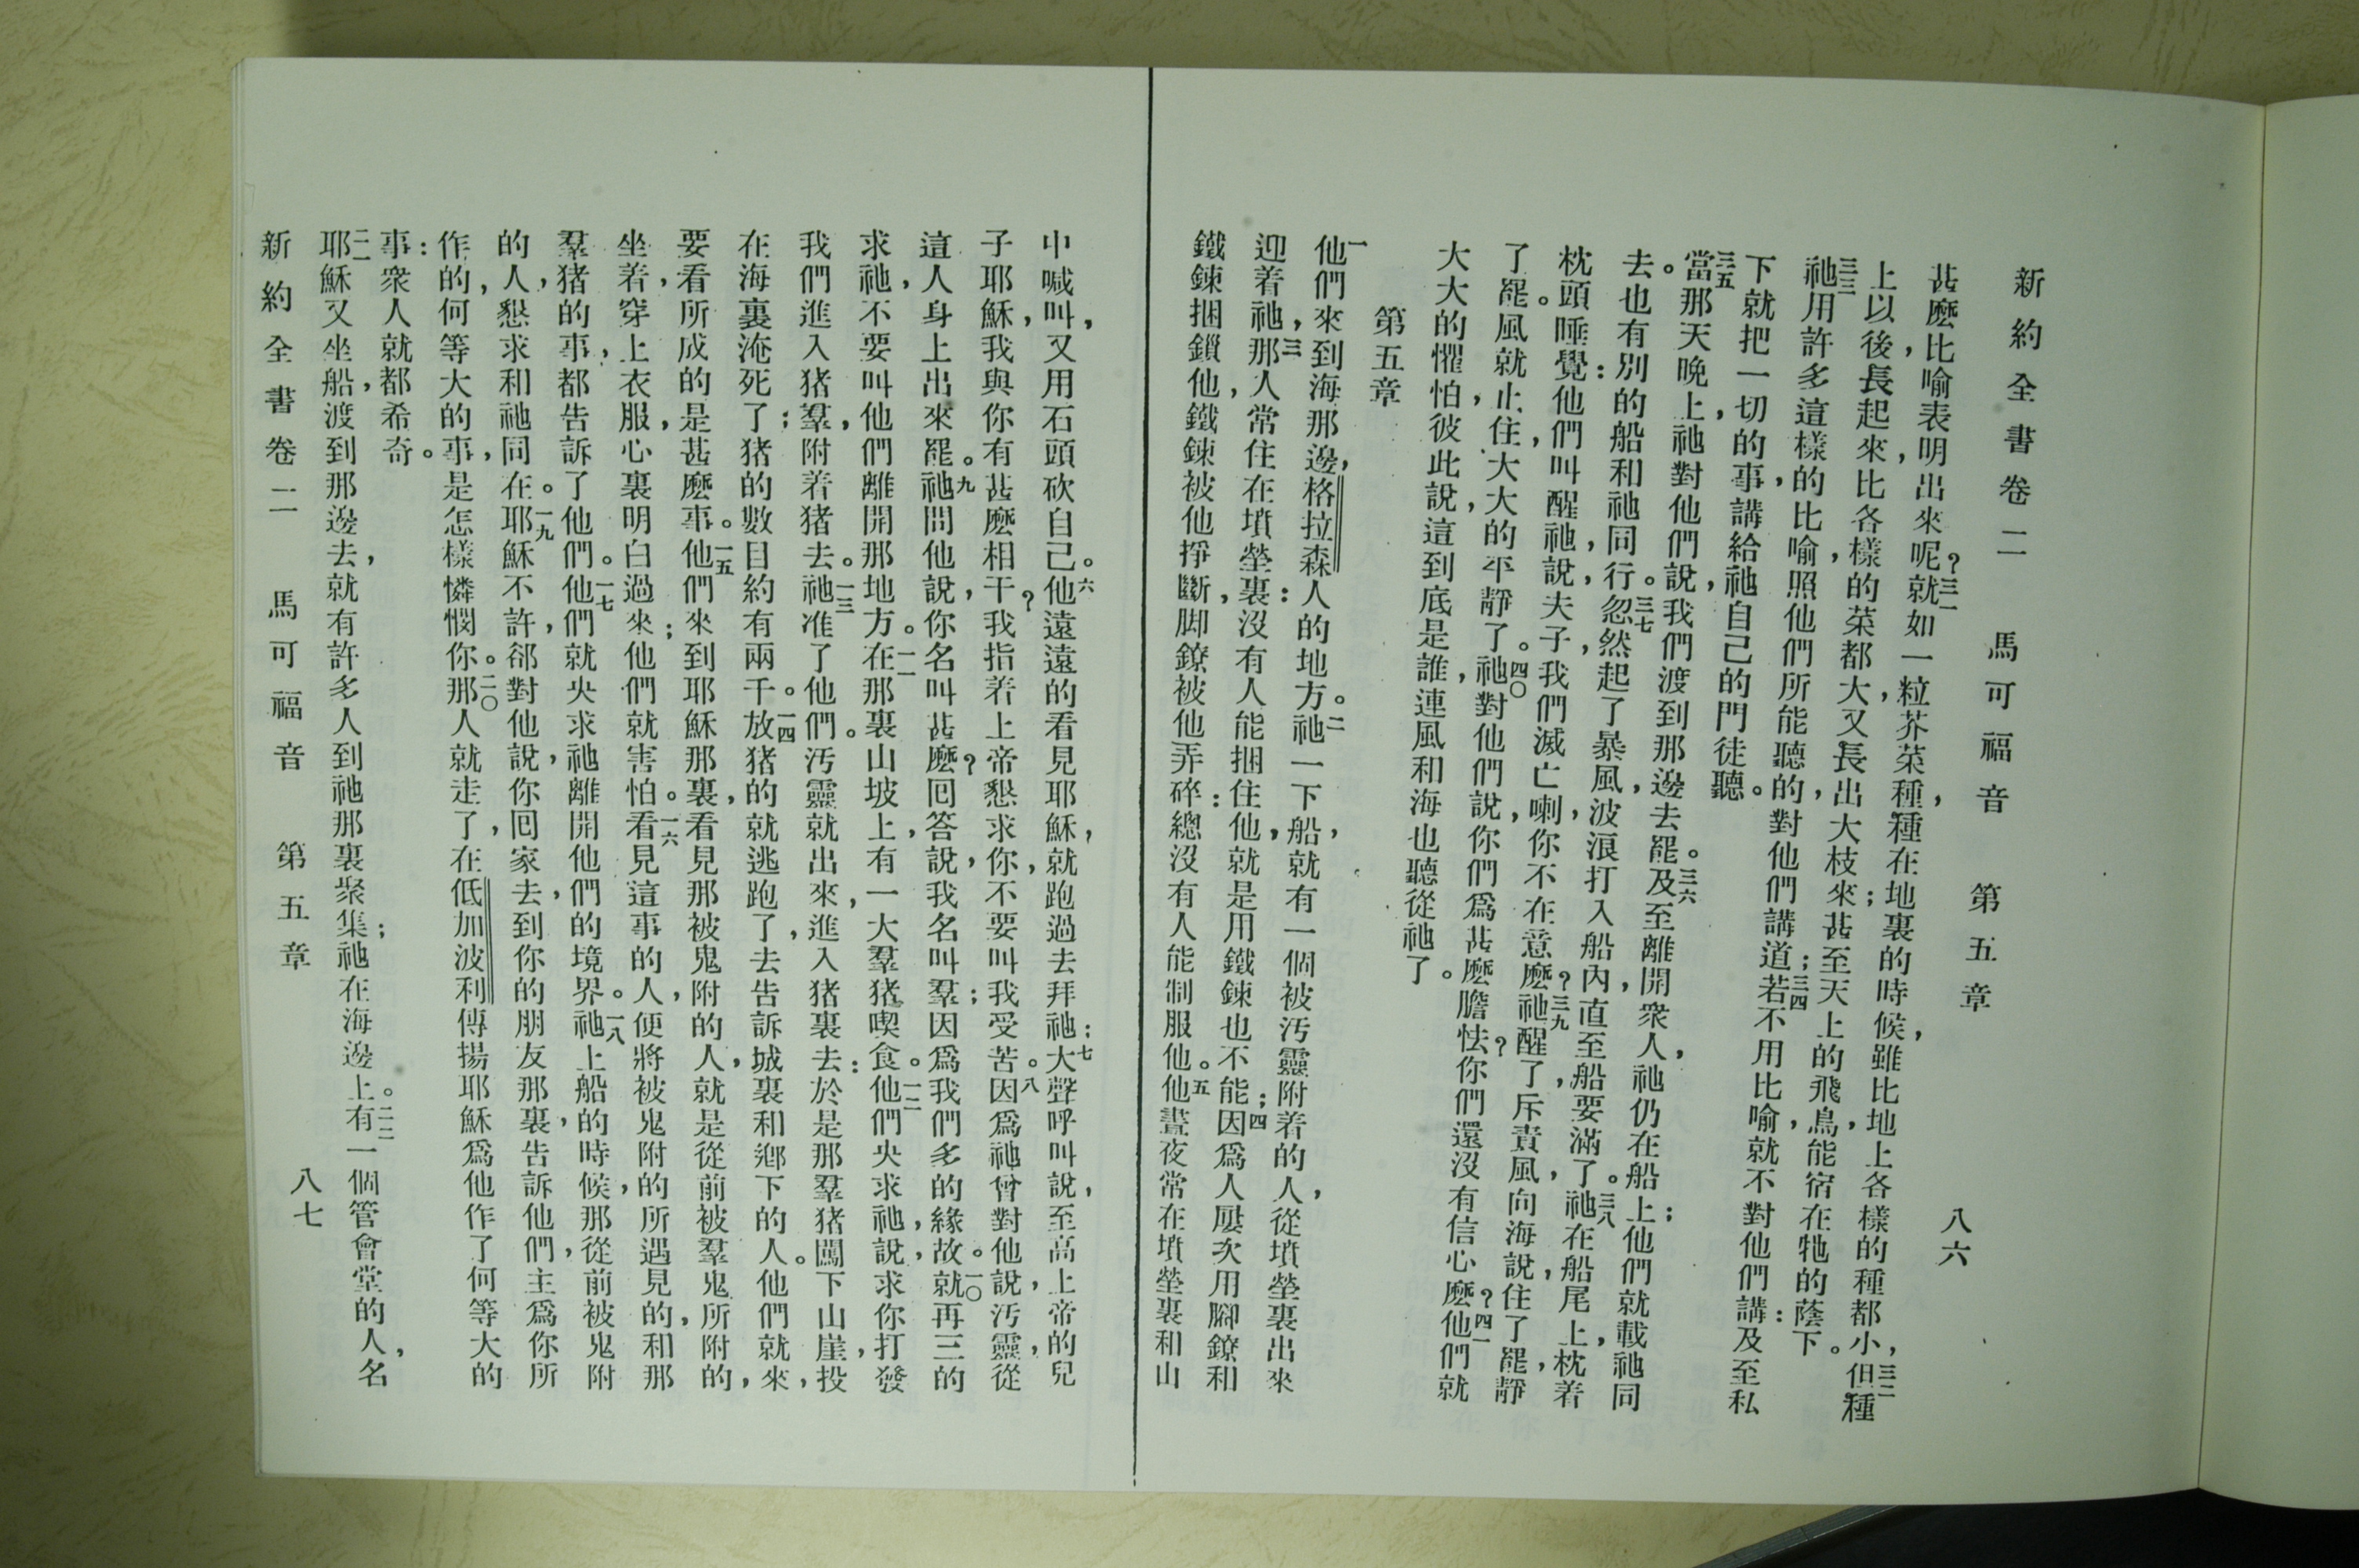 新約全書卷二 馬可福音 第五章 八六
甚麼比喻表明出來呢？三一就如一粒芥菜種，種在地裏的時候，雖比地上各樣的種都小，三二但種
上以後，長起來，比各樣的菜都大，又長出大枝來；甚至天上的飛鳥，能宿在牠的蔭下。
三三祂用許多這樣的比喻，照他們所能聽的，對他們講道；三四若不用比喻，就不對他們講：及至私
下就把一切的事，講給祂自己的門徒聽。
三五當那天晚上，祂對他們說，我們渡到那邊去罷。三六及至離開衆人，祂仍在船上；他們就載祂同
去。也有別的船和祂同行。三七忽然起了暴風，波浪打入船內，直至船要滿了。三八祂在船尾上，枕着
枕頭睡覺：他們叫醒祂，說，夫子，我們滅亡喇，你不在意麼？三九祂醒了，斥責風，向海說，住了罷，靜
了罷。風就止住，大大的平靜了。四〇祂對他們說，你們爲甚麼膽怯？你們還沒有信心麼？四一他們就
大大的懼怕，彼此說，這到底是誰，連風和海也聽從祂了。
第五章
一他們來到海那邊，格拉森人的地方。二祂一下船，就有一個被汚靈附着的人，從墳塋裏出來
迎着祂，三那人常住在墳塋裏：沒有人能捆住他，就是用鐵鍊也不能；四因爲人屢次用腳鐐和
鐵鍊捆鎖他，鐵鍊被他掙斷，脚鐐被他弄碎：總沒有人能制服他。五他晝夜常在墳塋裏和山
中喊叫，又用石頭砍自己。六他遠遠的看見耶穌，就跑過去拜祂；七大聲呼叫說，至高上帝的兒
子耶穌，我與你有甚麼相干？我指着上帝懇求你，不要叫我受苦。八因爲祂曾對他說，汚靈，從
這人身上出來罷。九祂問他說，你名叫甚麼？囘答說，我名叫羣；因爲我們多的緣故。一〇就再三的
求祂，不要叫他們離開那地方。一一在那裏山坡上，有一大羣猪喫食。一二他們央求祂，說，求你打發
我們進入猪羣，附着猪去。一三祂准了他們。汚靈就出來，進入猪裏去：於是那羣猪闖下山崖，投
在海裏淹死了；猪的數目約有兩千。一四放猪的就逃跑了，去告訴城裏和鄉下的人。他們就來，
要看所成的是甚麼事。一五他們來到耶穌那裏，看見那被鬼附的人，就是從前被羣鬼所附的，
坐着，穿上衣服，心裏明白過來；他們就害怕。一六看見這事的人，便將被鬼附的所遇見的，和那
羣猪的事，都告訴了他們。一七他們就央求祂離開他們的境界。一八祂上船的時候，那從前被鬼附
的人，懇求和祂同在。一九耶穌不許，郤對他說，你囘家去，到你的朋友那裏，告訴他們，主爲你所
作的，何等大的事，是怎樣憐憫你。二〇那人就走了，在低加波利傳揚耶穌爲他作了何等大的
事：衆人就都希奇。
二一耶穌又坐船，渡到那邊去，就有許多人到祂那裏聚集；祂在海邊上。二二有一個管會堂的人，名
新約全書卷二 馬可福音 第五章 八七